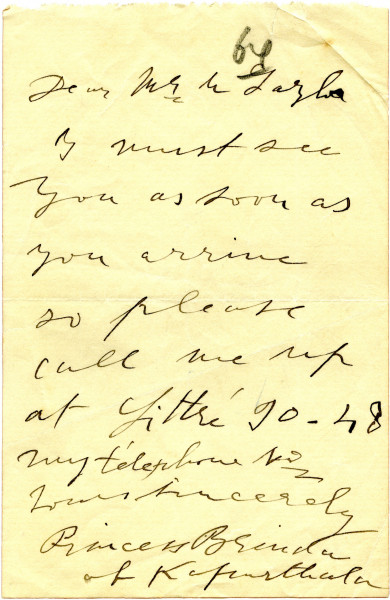 64
Dear Mrs
I must see
you as soon as
you arrive
so please
call me up
at Littré 90-48
my télephone No
Yours sincerely
Princess Brinda
of Kapurthala